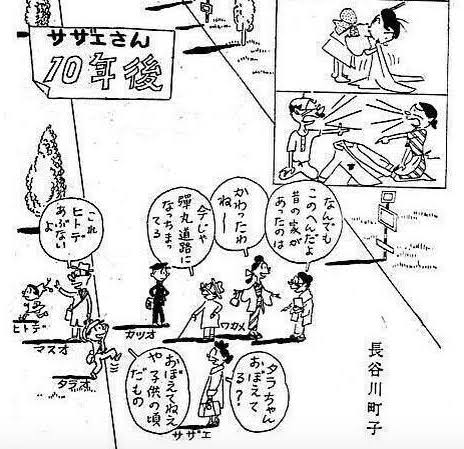 サザエさん
10年後
なんでも
このへんだよ
昔の家が
あったのは
かわったわ
ねー
今じゃ
彈丸道路に
なっちまっ
てる
これ
ヒトデ
あぶない
よ
ワカメ
カツオ
ヒトデ
マスオ
タラオ
タラちゃん
おぼえて
る?
おぼえてねえ
や子供の頃
だもの
サザエ
長谷川町子